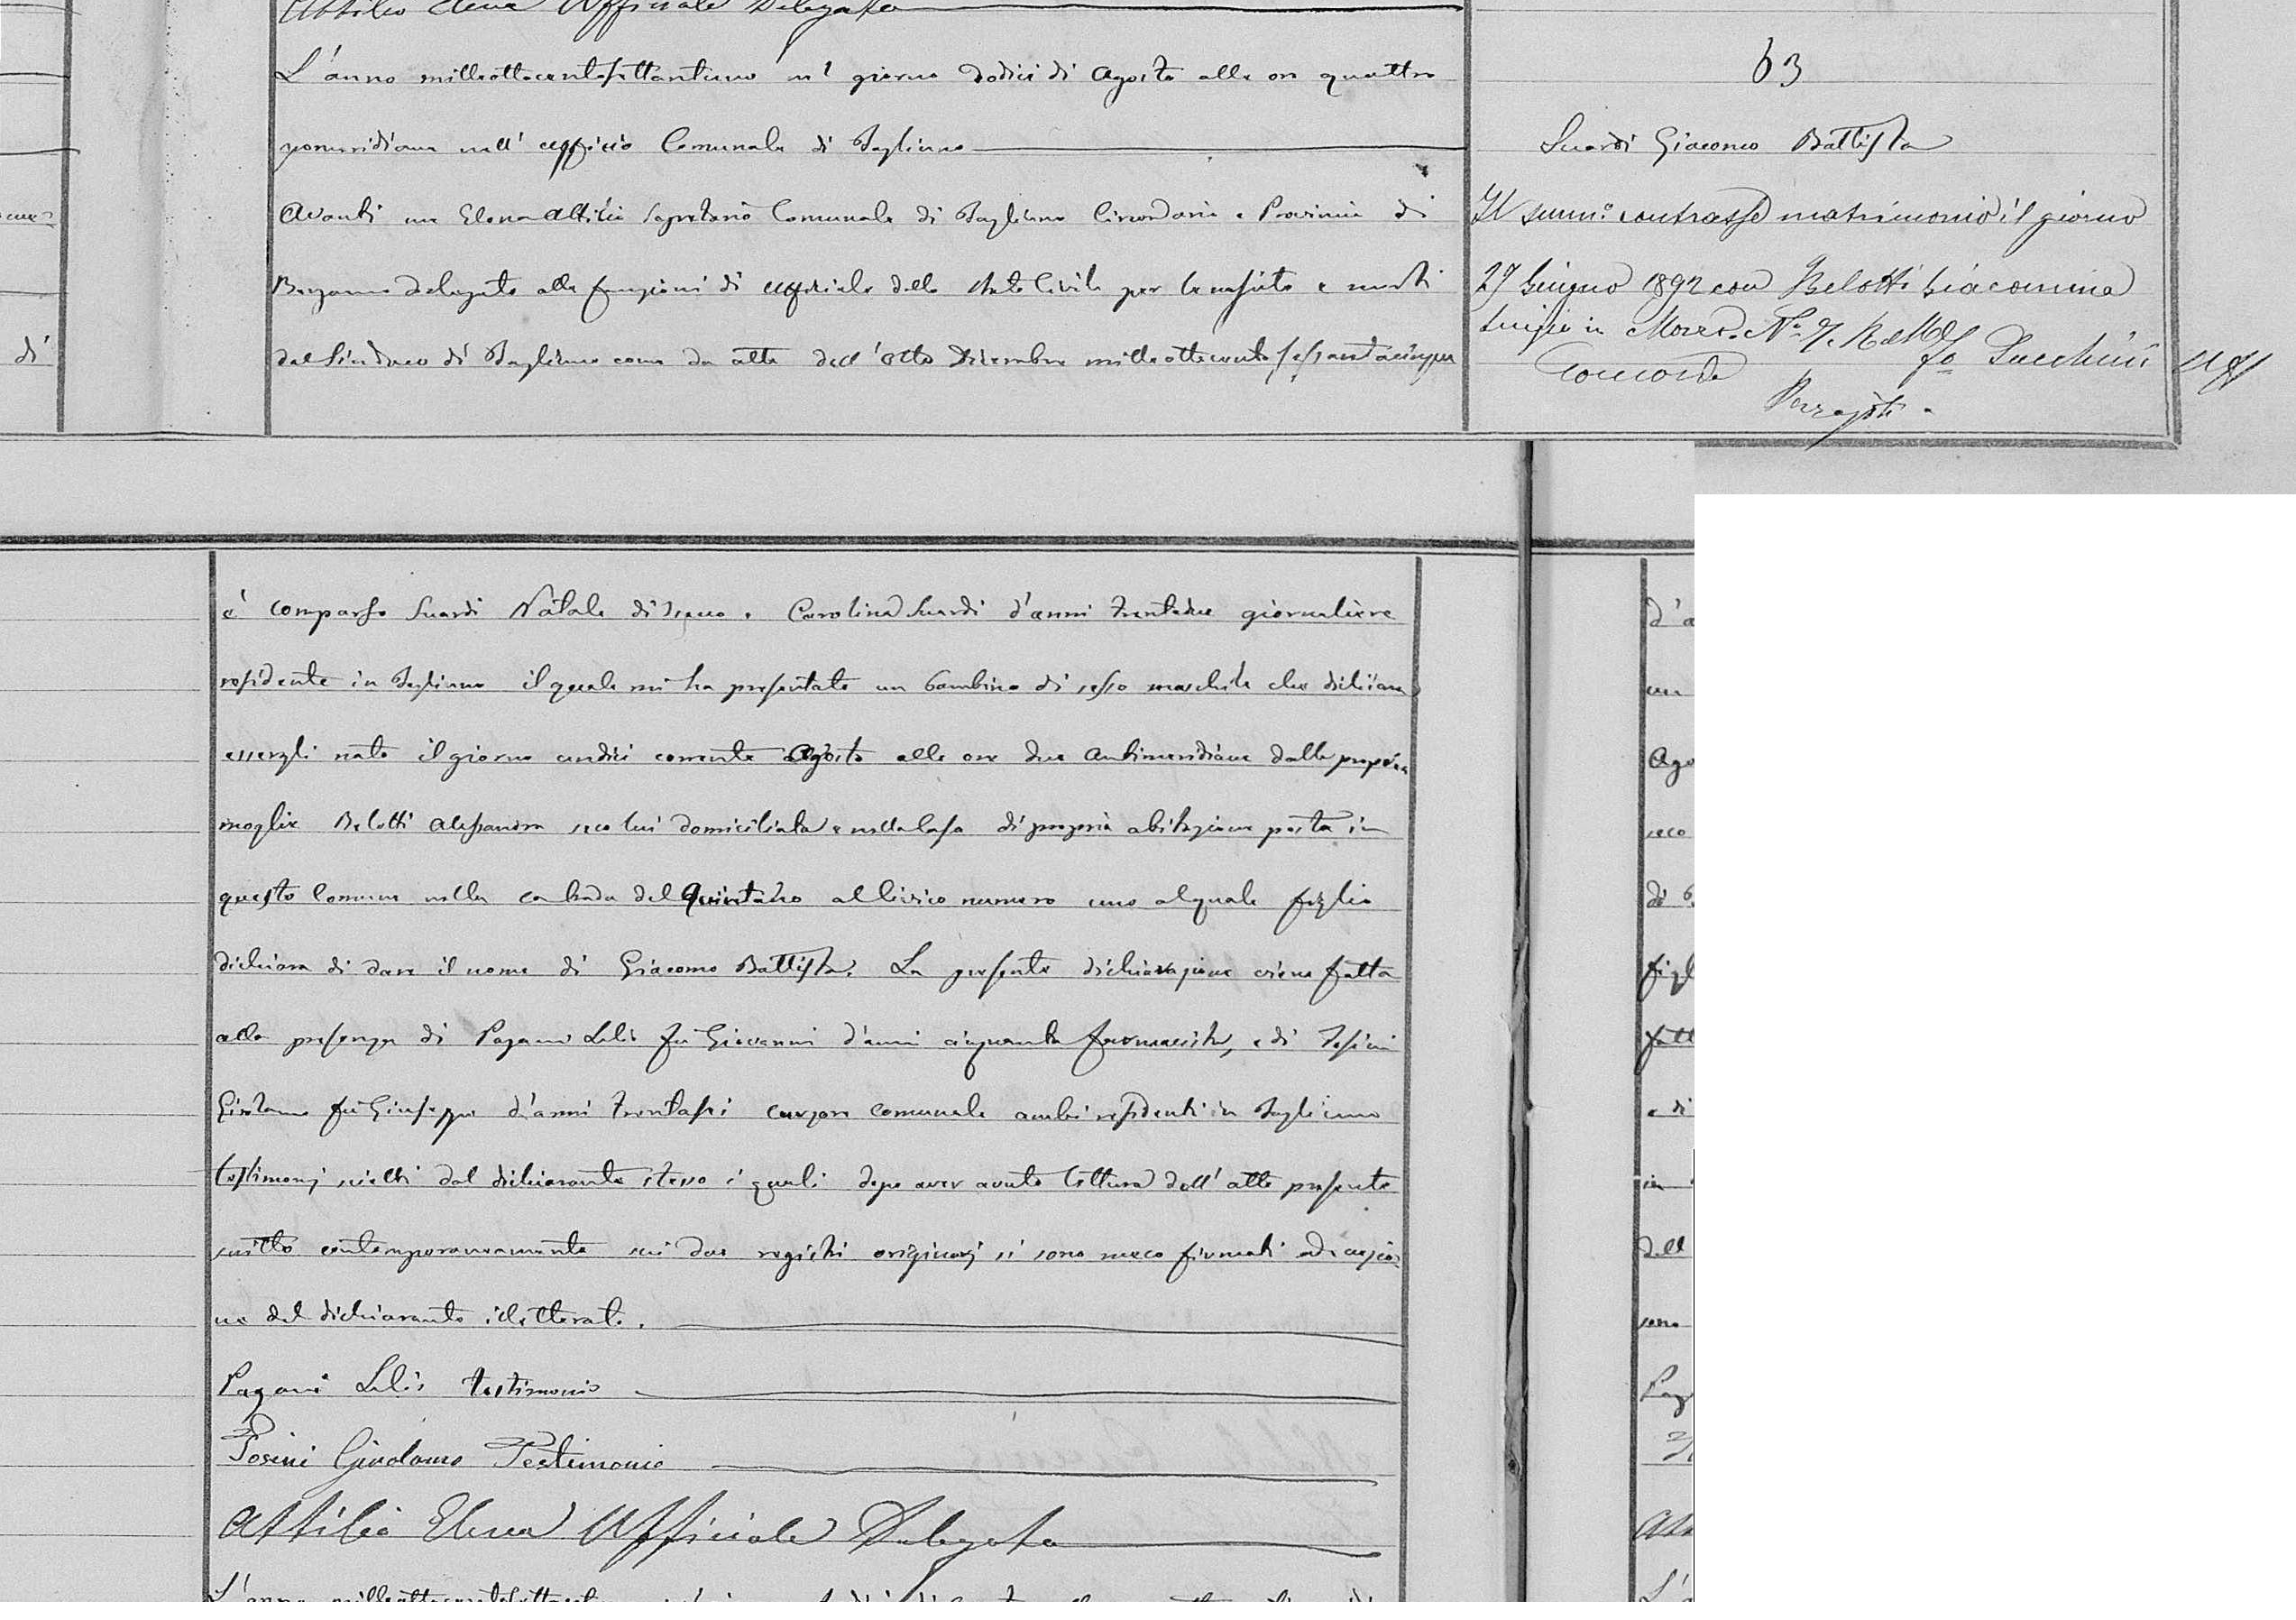 Attilio Elena Ufficiale Delegato
L'anno milleottocentosettantuno nel giorno dodici di Agosto alle ore quattro
pomeridiane nell' ufficio Comunale di Tagliuno
Avanti me Elena Attilio Segretario Comunale di Tagliuno Circondario e Provincia di
Bergamo delegato alle funzioni di ufficiale dello Stato Civile per le nascite e morti
dal Sindaco di Tagliuno come da atto dell' otto Dicembre milleottocentosessantacinque
63
Suardi Giacomo Battista
Il summ.o contrasse matrimonio il giorno
27 Giugno 1892 con Belotti Giacomina
Luigia in N.o 7.
Concorda
di
è comparso Suardi Natale di e Carolina Suardi d'anni trentadue giornaliere
residente in Tagliuno il quale mi ha presentato un bambino di sesso maschile che dichiara
essergli nato il giorno undici corrente Agosto alle ore due antimeridiane dalla propria
moglie Belotti Alessandra seco lui domiciliata e nella casa di propria abitazione posta in
questo Comune nella contrada del Quintano al civico numero uno al quale figlio
dichiara di dare il nome di Giacomo Battista. La presente dichiarazione viene fatta
alla presenza di Pagani Lelio fu Giovanni d'anni cinquanta farmacista, e di Tosini
Girolamo fu Giuseppe d'anni trentasei cursore comunale ambi residenti in Tagliuno
testimonj scielti dal dichiarante stesso i quali dopo aver avuto lettura dell' atto presente
scritto contemporaneamente sui due registri originarj si sono meco firmati ad eccezio
ne del dichiarante illetterato.
Pagani Lelio testimonio
Tosini Girolamo Testimonio
Attilio Elena Ufficiale Delegato